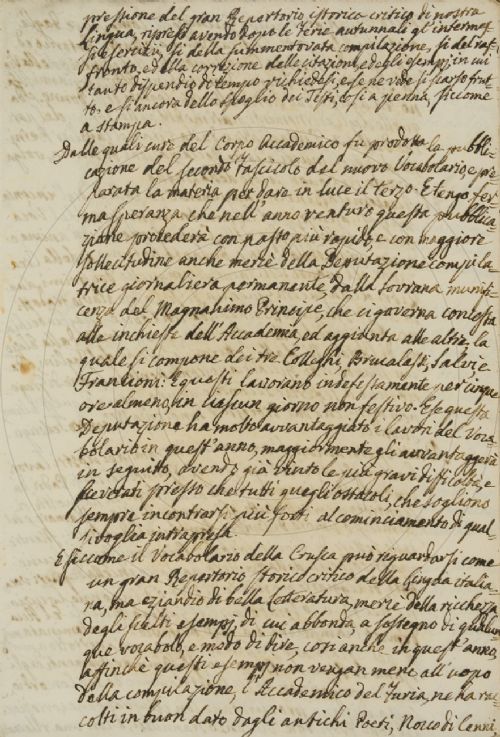 pressione del gran Repertorio istorico critico di nostra
lingua, ripreso avendo dopo le ferie autunnali gl'intermes-
si esercizi, si della summentovata compilazione, si del raf-
fronto, ed alla correzione delle citazioni, ed egli esempj, in cui
tanto dispendio di tempo richiedesi, e se ne vide si scarso frut-
to, e si ancora dello spoglio dei Testi, così a penna, siccome
a stampa.
Dalle quali cure del Corpo Accademico fu prodotta la pubbli-
cazione del secondo fascicolo del nuovo Vocabolario, e pre-
parata la materia per dare in luce il terzo. E tengo fer-
ma speranza che nell'anno venturo questa pubblica-
zione procederà con passo più rapido, e con maggiore
sollecitudine anche mercè della Deputazione compila-
trice giornaliera permanente, dalla sovrana munifi-
cenza del Magnanimo Principe, che ci governa concessa
alle inchieste dell'Accademia, ed aggiunta alle altre, la
quale si compone dei tre Colleghi Brucalassi, Salvi e
Franzioni: E questi lavorano indefessamente per cinque
ore almeno in ciascun giorno non festivo. E se questa
Deputazione ha molto avvantaggiato i lavori del Voca-
bolario in quest'anno, maggiormente gli avvantaggerà
in seguito, avendo già vinto le più gravi difficoltà, e
superati presso che tutti quegli ostacoli, che sogliono
sempre incontrarsi più forti al cominciamento di qual-
sivoglia intrapresa.
E siccome il Vocabolario della Crusca può riguardarsi come
un gran Repertorio storico critico della lingua italia-
na, ma eziandio di bella Letteratura, mercè della ricchezza
degli scelti esempj, di cui abbonda, a sostegno di qualun-
que vocabolo, e modo di dire, così anche in quest'anno,
affinchè questi esempj non vengan meno all'uopo
della compilazione, l'Accademico del Furia, ne ha rac-
colti in buon dato dagli antichi Poeti, Nocco di Cenni,